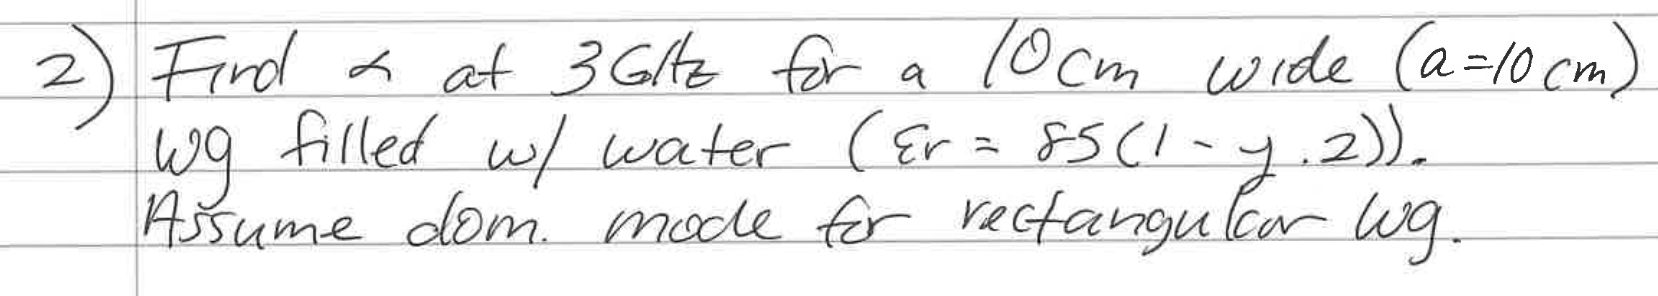 2) Find α at 3GHz for a 10cm wide (a=10cm)
wg filled w/ water (εr = 85(1-j.2)).
Assume dom. mode for rectangular wg.